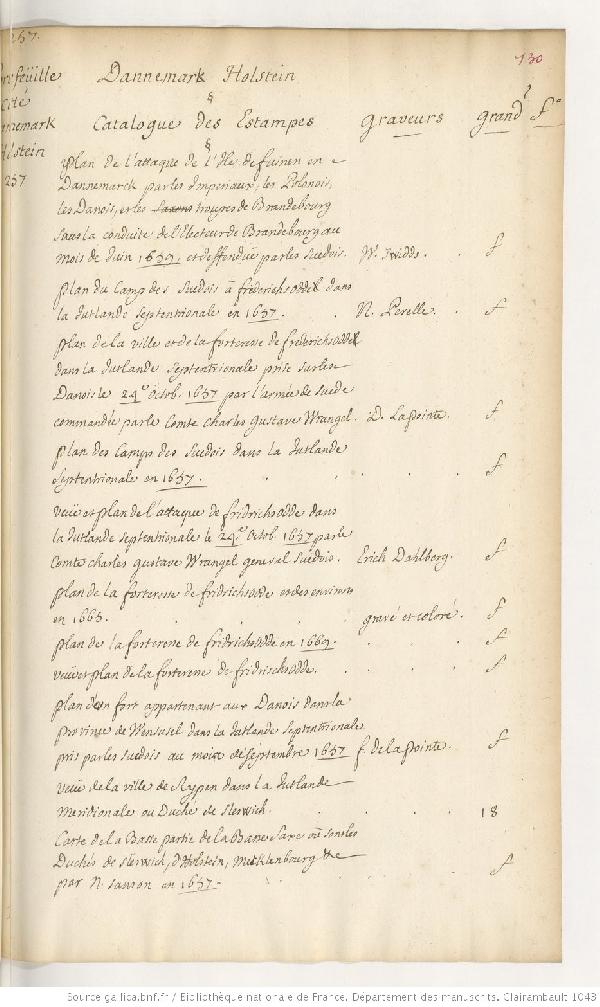 257.
730
Dannemark Holstein
§
Catalogue des Estampes Graveurs grand.r f.o
§
feüille
cité
nnemark
olstein
257
plan de l'attaque de l'Isle de fuinen en
Dannemarck par les Imperiaux, les Polonois,
les Danois, et les Saxons troupes de Brandebourg
sous la conduite de l'Electeur de Brandebourg au
mois de Juin 1659, et deffendüe par les Suedois. W. Swidde. f
plan du Camp des Suedois à friderichsodde dans
la Jutlande Septentrionale en 1657. N. Perelle. f
plan de la ville et de la forteresse de friderichsodde
dans la Jutlande Septentrionale prise sur les
Danois le 24.e Octob. 1657 par l'armée de Suede
commandée par le Comte Charles Gustave Wrangel. D. Lapointe. f
plan des Camps des Suedois dans la Jutlande
Septentrionale en 1657. f
veüe et plan de l'attaque de fridrichsodde dans
la Jutlande Septentrionale le 24.e Octob. 1657 par le
Comte Charles Gustave Wrangel general Suedois. Erich Dahlberg. f
plan de la forteresse de fridrichsodde et des environs
en 1665. gravé et coloré. f
plan de la forteresse de fridrichsodde en 1669. f
veüe et plan de la forteresse de fridrichsodde. f
plan d'un fort appartenant aux Danois dans la
province de Wensosel dans la Jutlande Septentrionale
pris par les Suedois au mois de Septembre 1657 f. de la pointe. f
veüe de la ville de Rypen dans la Jutlande
Meridionale ou Duché de Sleswich. 18
Carte de la Basse partie de la Basse Saxe où sont les
Duchés de Sleswich, d'Holstein, Mecklenbourg &c
par N. Sanson en 1657. f
Source gallica.bnf.fr / Bibliothèque nationale de France. Département des manuscrits. Clairambault 1043